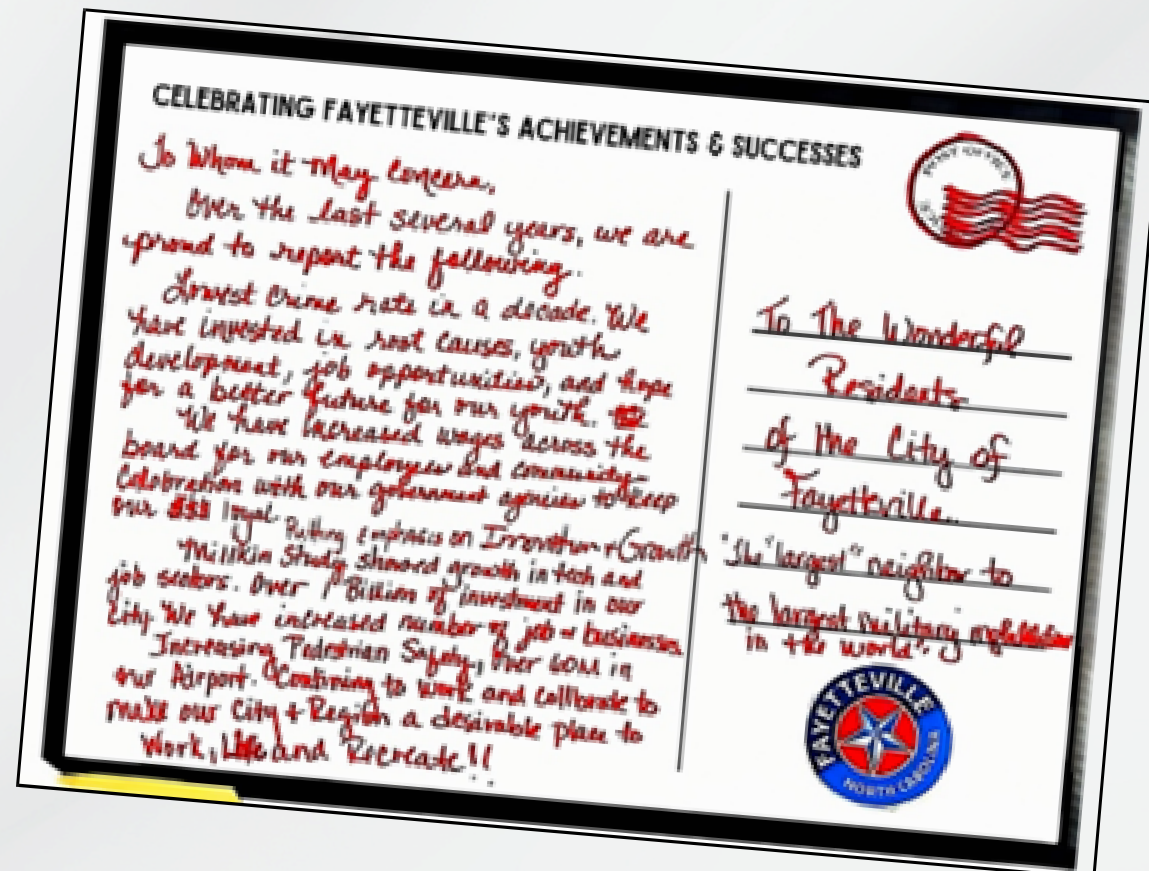 CELEBRATING FAYETTEVILLE'S ACHIEVEMENTS & SUCCESSES
To Whom it May Concern,
Over the last several years, we are
proud to report the following.
Lowest Crime rate in a decade. We
have invested in root causes, youth
development, job opportunities, and hope
for a better future for our youth.
We have increased wages across the
board for our employees and community
Celebration with our government agencies to keep
our loyal. Putting emphasis on Innovation + Growth
Millkin Study showed growth in tech and
job sectors. Over 1 Billion of investment in our
City. We have increased number of job + businesses
Increasing Pedestrian Safety, Over 60M in
our Airport. Continuing to work and collbrate to
make our City + Region a desirable place to
Work, Life and Recreate!!
POST OFFICE
To The Wonderful
Residents
of the City of
Fayetteville.
"The "largest" neighbor to
the largest military
in the world".
FAYETTEVILLE
NORTH CAROLINA